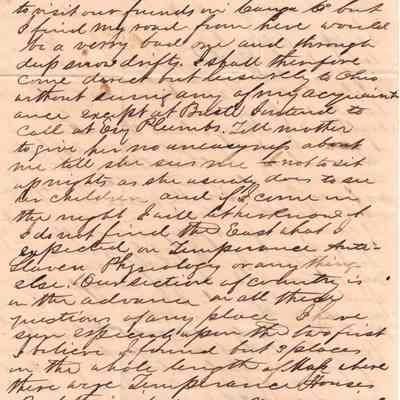 to visit our friends in Cayuga Co but
I find my road from here would
be a verry bad one and through
deep snow drifts. I shall therefore
come direct but leisurely to Ohio
without seeing any of my acquaint
ance except at Bristol I intend to
call at Ely Plumbs. Tell mother
to give her no uneasyness about
me till she sees me — not to sit
up nights as she usually does to see
her children and if I come in
the night I will let her know it
I do not find the East what I
expected on Temperance Anti-
Slavery Physiology or any thing
else. Our section of country is
in the advance on all these
questions of any place I have
seen especially upon the two first
I believe I found but 3 places
in the whole length of Mass where
there were Temperance Houses